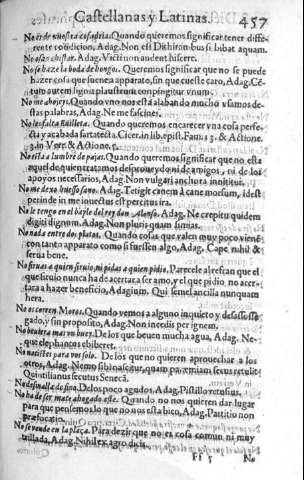 Castellanas y Latinas. 457
No es de nuestra cofadria. Quando queremos significar tener diffe-
rente condicion, Adag. Non est Dithirambus si bibat aquam.
No osan chistar. Adag. Victi non audent hiscere.
No se haze la boda de hongos. Queremos significar que no se puede
hazer cosa que suene a apparato, sin que cueste caro, Adag. Cẽ-
tum autem ligna plaustrum conpingitur vnum.
No me ahojeys. Quando vno nos està alabando mucho y vsamos de-
stas palabras, Adag. Ne me fascines.
No le falta
Quando queremos encarecer vna cosa perfe-
cta y acabada
Adag. Cicer. in lib. epist. Fam. 13. & Actione.
3. in Verr. & Actione.
No està a lumbre de pajas. Quando queremos significar que no esta
aquel de quien tratamos desproueydo ni de amigos, ni de los
apoyos necessarios, Adag. Non vulgari anchora innititur.
No me dexo huesso sano. Adag. Tetigit cnem à cane morsum, idest
perinde in me inuectus est
No le tengo en el baxle del rey don Alonso. Adag. Ne crepitu quidem
digiti dignum, Adag. Non pluris quam simias.
No nada entre dos platos. Quando cosas que valen muy poco vienẽ
con tanto apparato como si fuessen algo, Adag. Cape nihil &
serua bene.
No siruas a quien siruio, ni pidas a quien pidio. Parecele al refran que el
que siruio nunca ha de acertar a ser amo, y el que pidio no acer-
tara a hazer beneficio, Adagium. Qui semel ancilla nunquam
hera.
No es correm Moros. Quando vemos a alguno inquieto y desasosse-
gado, y sin proposito, Adag. Non incedis per ignem.
No beuiera mas vn buey. De los que beuen mucha agua, Adag. Ne-
que elephantus ebiberet.
No nacistes para vos solo. De los que no quieren aprouechar a los
otros, Adag. Nemo sibi nascitur, quam paræmiam secus retulit
Quintilianus secutus Senecã.
De los poco agudos, Adag. Pistillo retusius.
No ha de ser mate ahogado este. Quando no nos quieren dar lugar
para que pensemos lo que no nos esta bien, Adag.
non
præfocas.
No se vende en la plaça. Para dezir que no es cosa comun ni muy
trillada, Adag. Nihil ex agro dicis.
Ff 5 No